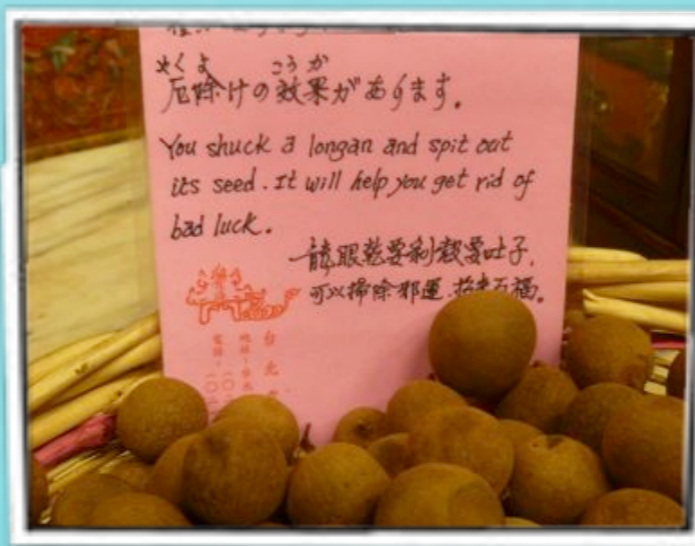 やくよ こうか
厄除けの効果があります。
You shuck a longan and spit out
its seed. It will help you get rid of
bad luck.
龍眼乾要剝殼要吐子,
可以掃除邪運.招來百福。
台北